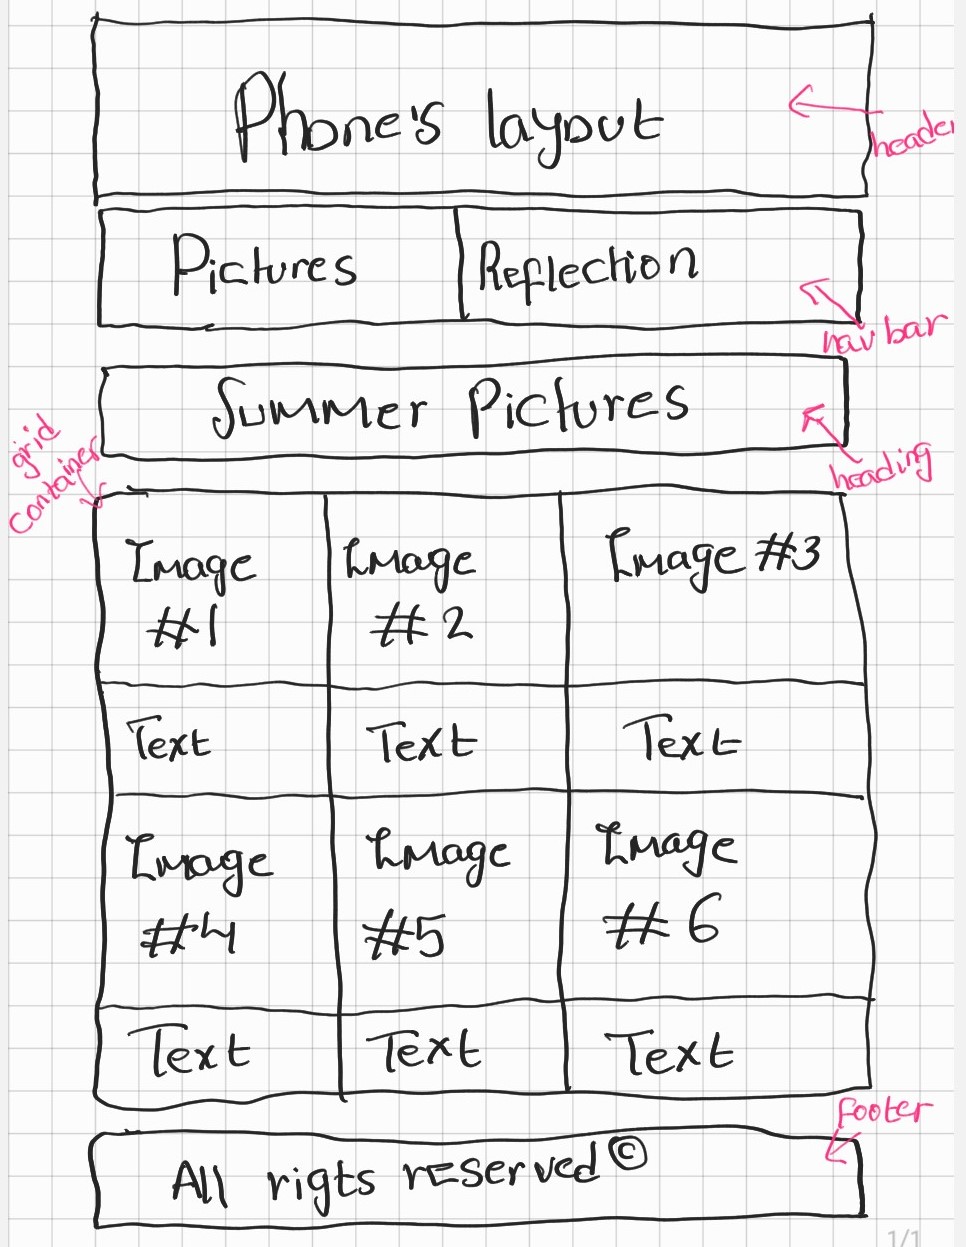 Phone's layout
header
Pictures Reflection
nav bar
Summer Pictures
heading
grid
container
Image Image Image #3
#1 #2
Text Text Text
Image Image Image
#4 #5 #6
Text Text Text
Footer
All rigts reserved ©
1/1